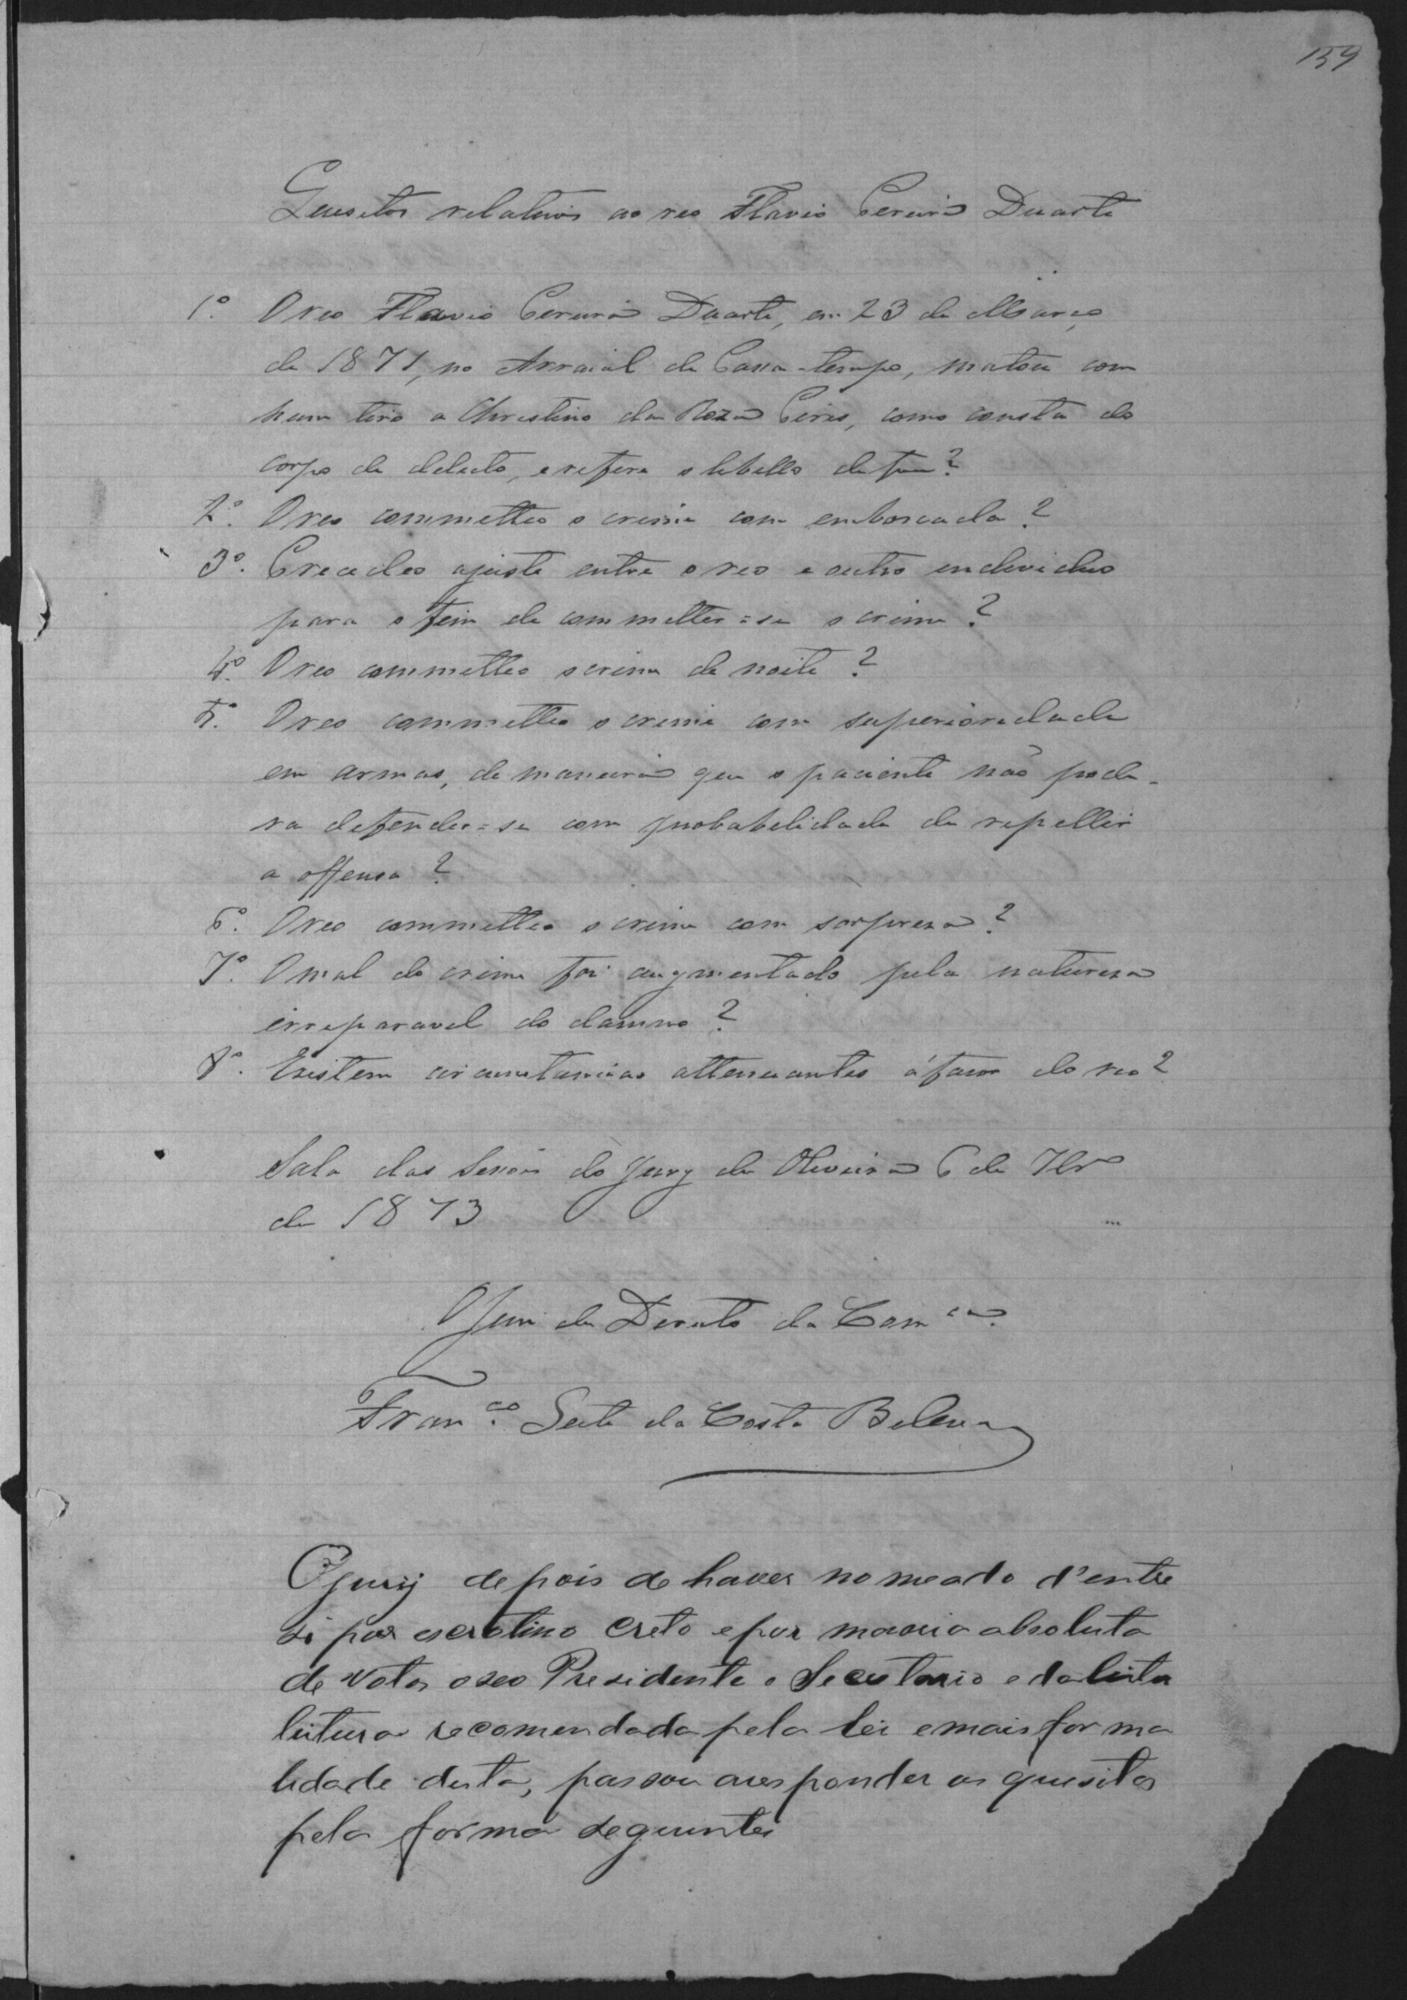 159
Quesitos relativos ao reo Flavio Pereira Duarte
1.º O reo Flavio Pereira Duarte, em 23 de Março
de 1871, no Arraial de Passa-tempo, matou com
hum tiro a Christino da Roza Pires, como consta do
corpo de delicto, e refere o libello de fª?
2.º O reo commetteo o crime com emboscada?
3.º Precedeo ajuste entre o reo e outro individuo
para o fim de commetter=se o crime?
4.º O reo commetteo o crime de noite?
5.º O reo commetteo o crime com superioridade
em armas, de maneira que o paciente não pode-
ra defender=se com probabelidade de repellir
a offensa?
6.º O reo commetteo o crime com sorpresa?
7.º O mal do crime foi augmentado pela naturesa
irreparavel do damno?
8.º Existem circunstancias attenuantes á favor do reo?
Sala das Sessões do Jury da Oliveira 6 de 7brº
de 1873
O Juiz de Dereito da Comca.
Franco. Leite da Costa Belem
O jurij depois de haver nomeado d'entre
si por escrotino creto e por maioria absoluta
de votos o seo Presidente e Secretario e da leita
leitura recomendada pela lei e mais forma
lidade desta, passou a responder os quesitos
pela forma seguintes